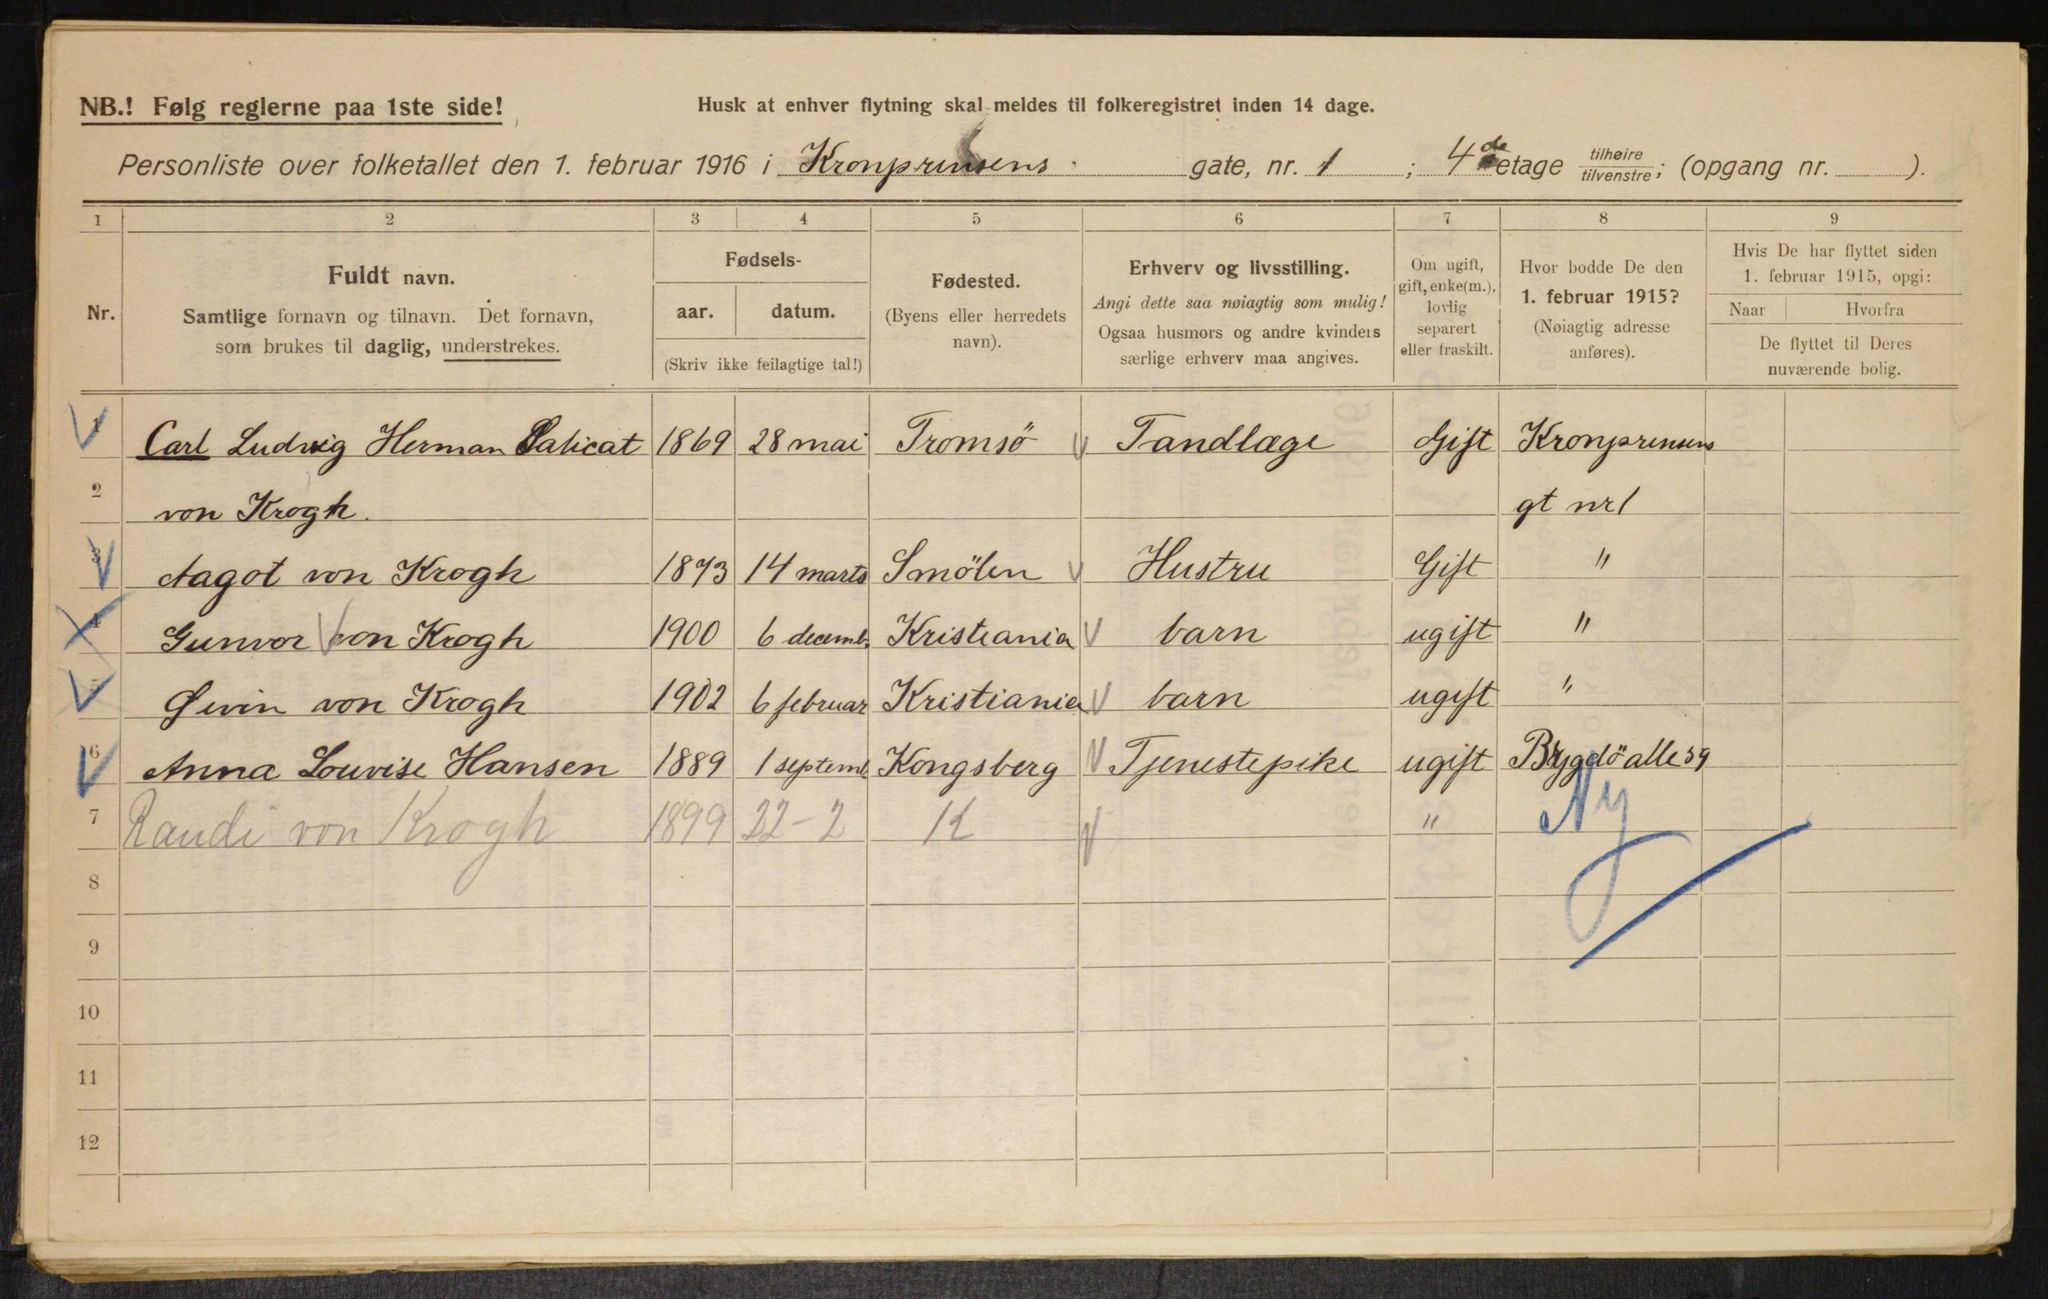 NB.! Følg reglerne paa 1ste side!
Husk at enhver flytning skal meldes til folkeregistret inden 14 dage.
Personliste over folketallet den 1. februar 1916 i Kronprinsens gate, nr. 1 ; 4de etage tilhøire tilvenstre ; (opgang nr. ).
1 2 3 4 5 6 7 8 9
Nr.
Fuldt navn.
Samtlige fornavn og tilnavn. Det fornavn,
som brukes til daglig, understrekes.
Fødsels-
aar. datum.
(Skriv ikke feilagtige tal!)
Fødested.
(Byens eller herredets
navn).
Erhverv og livsstilling.
Angi dette saa nøiagtig som mulig!
Ogsaa husmors og andre kvinders
særlige erhverv maa angives.
Om ugift,
gift, enke(m.),
lovlig
separert
eller fraskilt.
Hvor bodde De den
1. februar 1915?
(Nøiagtig adresse
anføres).
Hvis De har flyttet siden
1. februar 1915, opgi:
Naar Hvorfra
De flyttet til Deres
nuværende bolig.
1 Carl Ludvig Herman 1869 28 mai Tromsö Tandlæge Gift Kronprinsens
2 von Krogh. gt nr 1
3 Aagot von Krogh 1873 14 marts Smölen Hustru Gift "
4 Gunvor von Krogh 1900 6 decemb. Kristiania barn ugift "
5 Øivin von Krogh 1902 6 februar Kristiania barn ugift "
6 Anna Louvise Hansen 1889 1 septemb. Kongsberg Tjenestepike ugift Bygdö alle 59
7 Randi von Krogh 1899 22-2 K " Ny
8
9
10
11
12